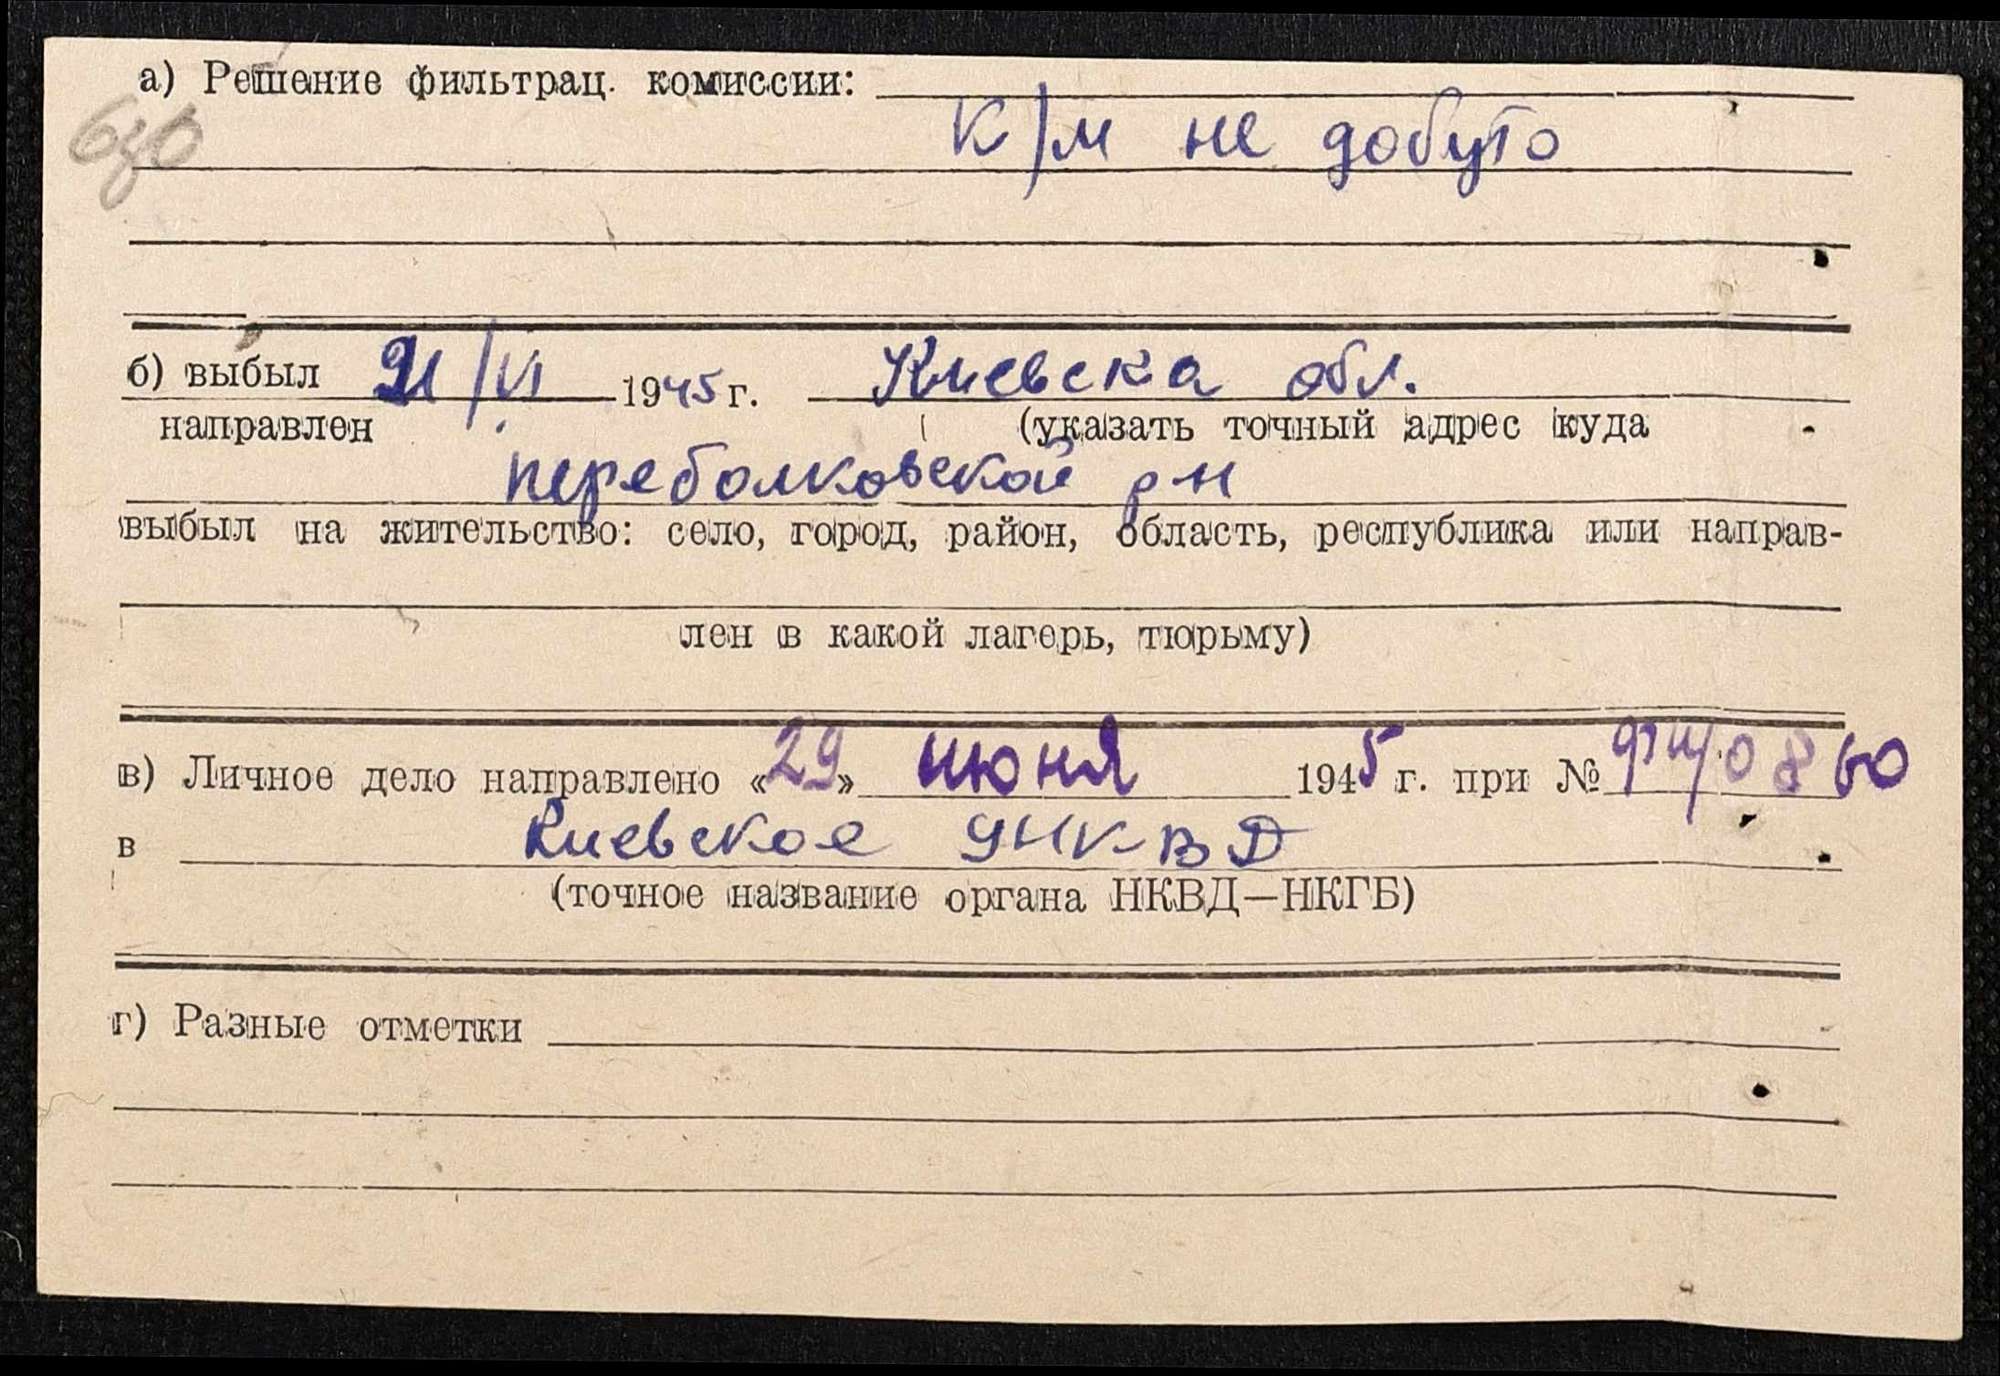 а) Решение фильтрац. комиссии:
К/м не добуто
б) выбыл 21/VI 1945 г. Киевска обл.
направлен (указать точный адрес куда
переболковской р-н
выбыл на жительство: село, город, район, область, республика или направ-
лен в какой лагерь, тюрьму)
в) Личное дело направлено «29» июня 1945 г. при №
в Киевское УНКВД
(точное название органа НКВД—НКГБ)
г) Разные отметки